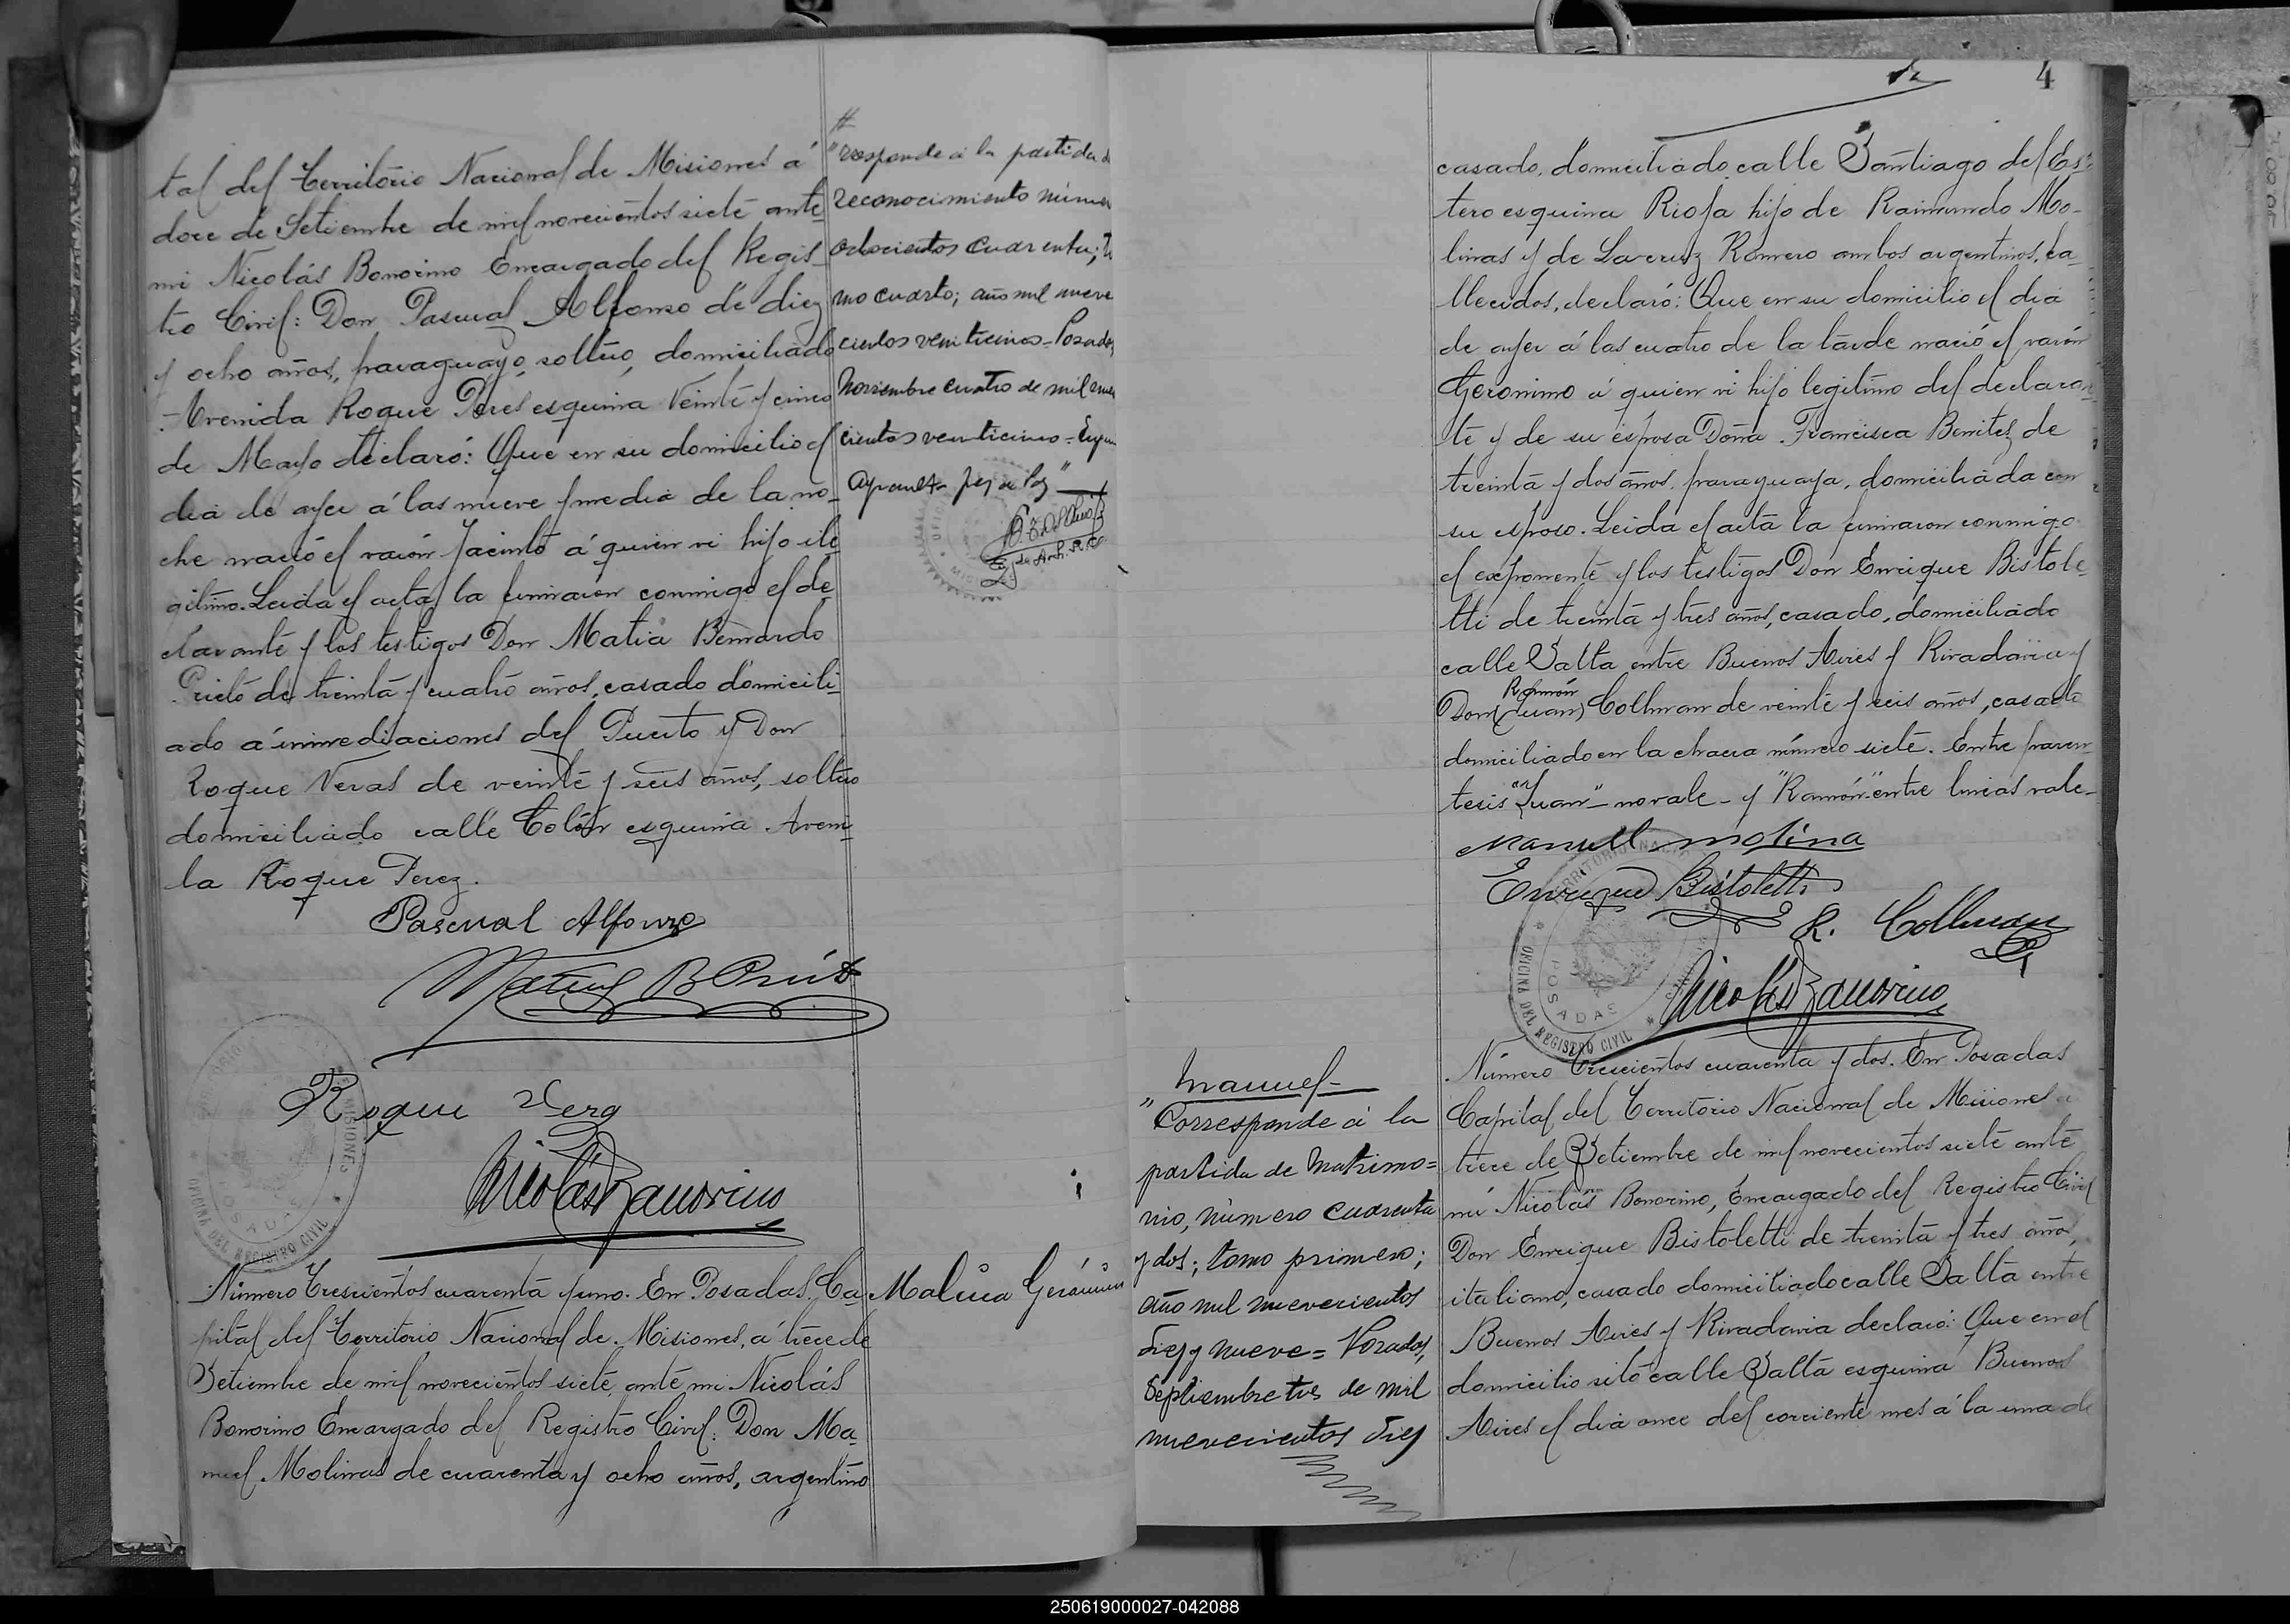 tal del Territorio Nacional de Misiones á
doce de Setiembre de mil novecientos siete ante
mi Nicolás Bonorino Encargado del Regis-
tro Civil: Don Pascual Alfonso de diez
y ocho años, paraguayo, soltero, domiciliado
Avenida Roque Perez esquina Veinte y cinco
de Mayo declaró: Que en su domicilio el
dia de ayer á las nueve y media de la no-
che nació el varón Jacinto á quien vi hijo ile
gitimo. Leida el acta, la firmaron conmigo el de
clarante y los testigos Don Matia Bernardo
Prieto de treinta y cuatro años, casado domicili-
ado á inmediaciones del Puerto y Don
Roque Veras de veinte y seis años, soltero
domiciliado calle Colón esquina Aveni-
la Roque Perez.
Pascual Alfonzo
Matias B Prieto
Roque Vera
Nicolás Bonorino
OFICINA DEL REGISTRO CIVIL
POSADAS
MISIONES
#
"responde á la partida d
reconocimiento núme
ochocientos cuarenta; T
mo cuarto; año mil nueve
cientos veinticinco = Posadas,
Noviembre cuatro de mil nue
cientos veinticinco =
Juez de Paz"
Número Trescientos cuarenta y uno. En Posadas. Ca-
pital del Territorio Nacional de Misiones, á trece de
Setiembre de mil novecientos siete, ante mi Nicolás
Bonorino Encargado del Registro Civil: Don Ma-
nuel Molinas de cuarenta y ocho años, argentino
Gerónimo
4
casado, domiciliado calle Santiago del Es-
tero esquina Rioja hijo de Raimundo Mo-
linas y de Lacruz Romero ambos argentinos, fa-
llecidos, declaró: Que en su domicilio el dia
de ayer á las cuatro de la tarde nació el varón
Geronimo á quien vi hijo legitimo del declaran-
te y de su esposa Doña Francisca Benitez de
treinta y dos años, paraguaya, domiciliada con
su esposo. Leida el acta la firmaron conmigo
el exponente y los testigos Don Enrique Bistole-
tti de treinta y tres años, casado, domiciliado
calle Salta entre Buenos Aires y Rivadavia y
Ramón
Don (Juan) Collman de veinte y seis años, casado
domiciliado en la chacra número siete. Entre paren-
tesis "Juan" no vale - y "Ramón" entre lineas vale-
Manuel molina
Enrique Bistoletti
R. Collman
Nicolás Bonorino
TERRITORIO NACIONAL
OFICINA DEL REGISTRO CIVIL
POSADAS
Manuel
"Corresponde á la
partida de Matrimo=
nio, número cuarenta
y dos; tomo primero;
año mil nuevecientos
diez y nueve = Posadas,
Septiembre tres de mil
nuevecientos diez
Número Trescientos cuarenta y dos. En Posadas
Capital del Territorio Nacional de Misiones á
trece de Setiembre de mil novecientos siete ante
mi Nicolás Bonorino, Encargado del Registro Civil
Don Enrique Bistoletti de treinta y tres años,
italiano, casado domiciliado calle Salta entre
Buenos Aires y Rivadavia declaró: Que en el
domicilio sito calle Salta esquina Buenos
Aires el dia once del corriente mes á la una de
250619000027-042088